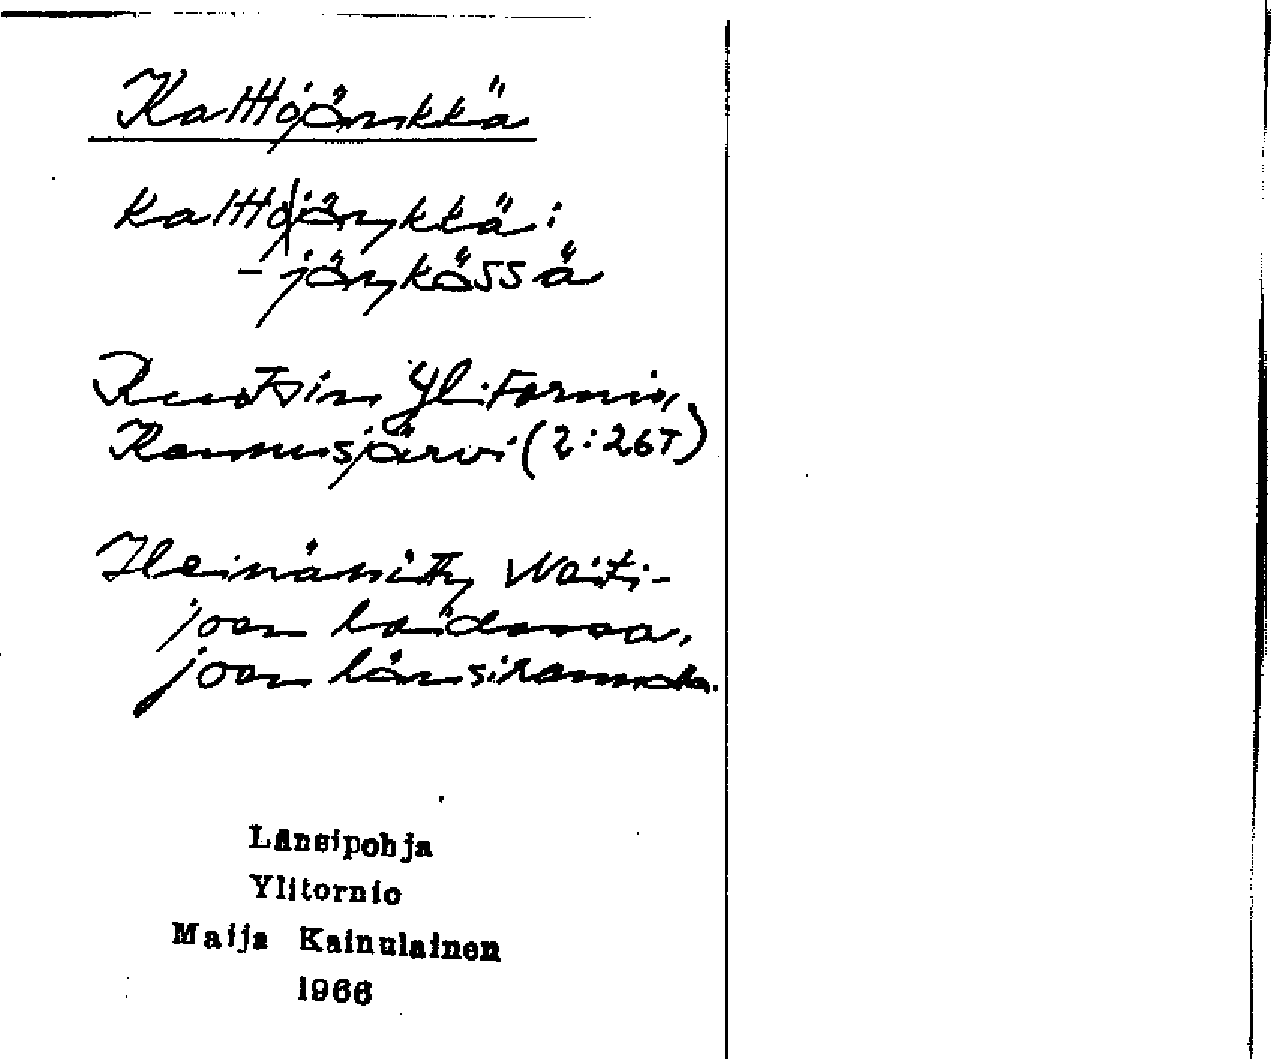 Kalttojänkkä
kalttojäŋkkä:
- jäŋkässä
Ruotsin Ylitornio,
Kannusjärvi (2:267)
Heinäniitty
joen laidassa,
joen länsirannalla.
Länsipohja
Ylitornio
Maija Kainulainen
1966